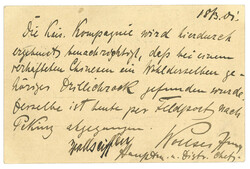 18/3. 01.
Die Kais. Kompagnie wird hierdurch
ergebenst benachrichtigt, daß bei einem
verhafteten Chinesen ein gehöriger Drillichrock gefunden wurde.
Derselbe ist heute per Feldpost nach
Peking abgegangen.
Hauptm. u. Distr. Chef.